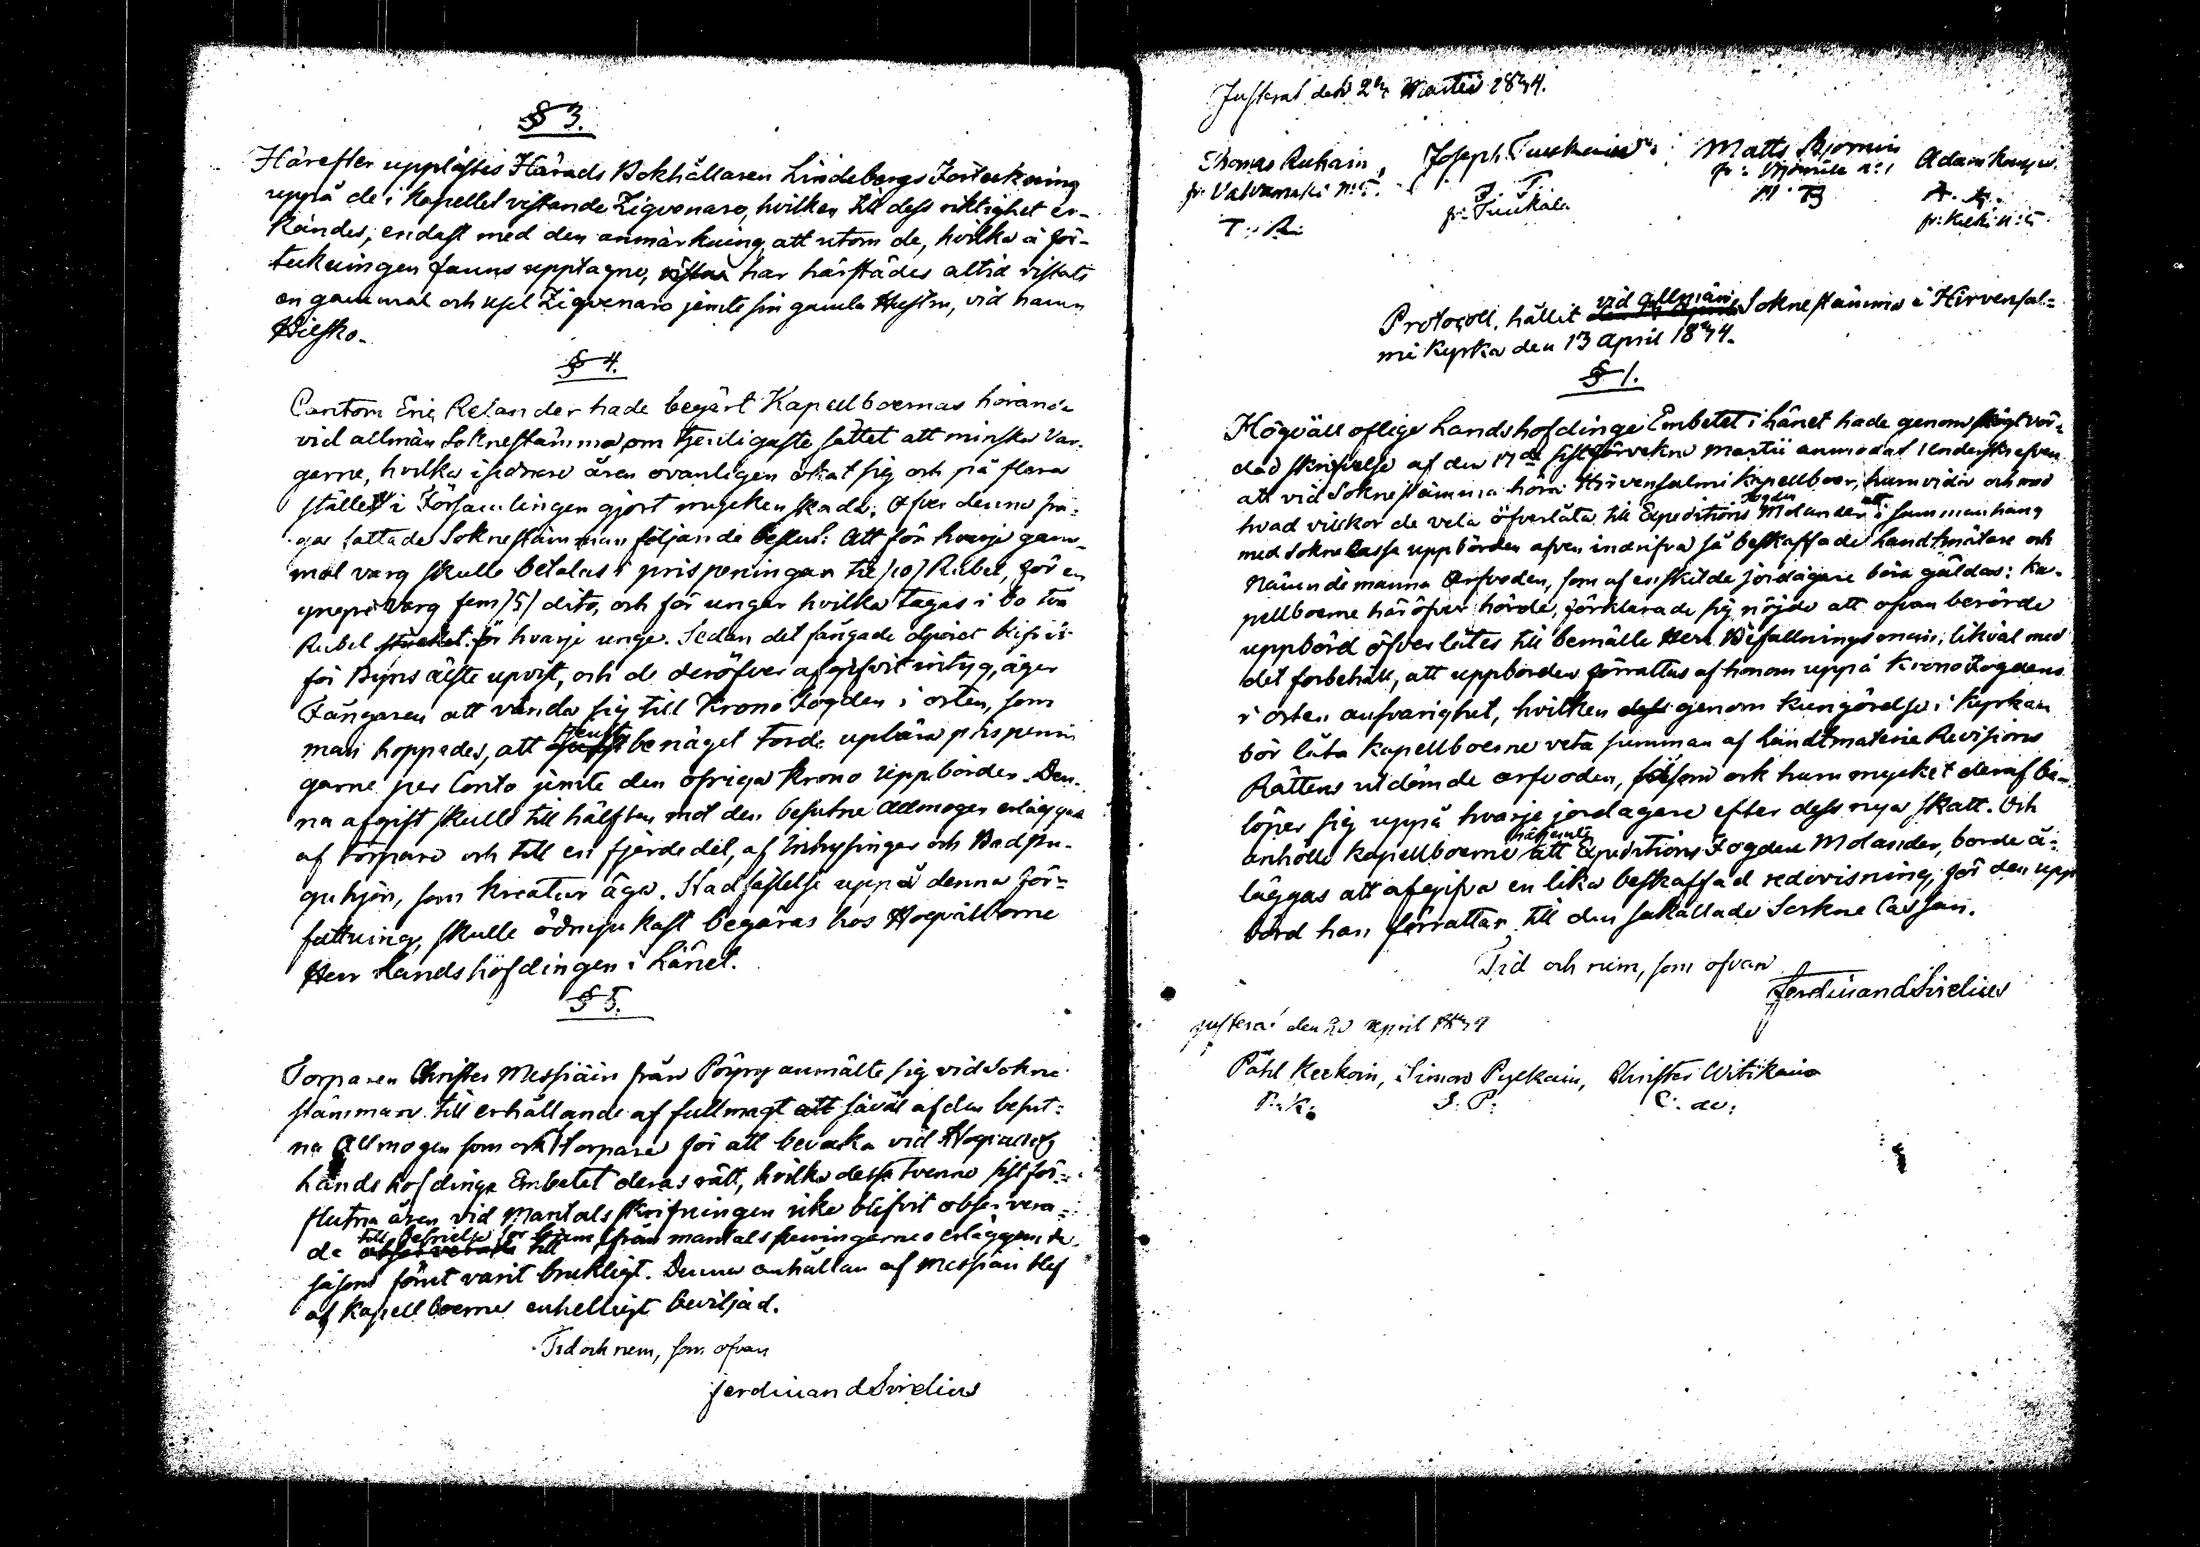 § 3.
Härefter upplästes Härads Bokhållaren Lindebergs Förteckning
uppå de i Kapellet vistande Zigvenare, hvilken till dess riktighet er-
kändes, endast med den anmärkning, att utom de, hvilka å för-
teckningen funns upptagne, har härstädes altid vistats
en gammal och usel Zigvenare jemte sin gamla Hustru, vid namn
§ 4.
Cantorn Eric Relander hade begärt Kapellboernas hörande
vid allmän Soknestämma, om tjenligaste sättet att minska Var-
garne, hvilka i sednare åren ovanligen ökat sig och på flera
ställen i Församlingen gjort mycken skada. Öfver denna frå-
ga fattade Soknestämman följande beslut: Att för hvarje gam-
mal varg skulle betalas i prispeningar tie /10/ Rubel, för en
yngre Varg fem /5/ dito, och för ungar hvilka tagas i bo två
Rubel för hvarje unge. Sedan det fångade djuret blifvit
för Byns älste upvist, och de deröfver afgifvit intyg, äger
Fångaren att vända sig till Krono Fogden i orten, som
man hoppades, att benäget torde upbära prispenin
garne per Conto jemte den öfriga Krono Uppbörden. Den-
na afgift skulle till hälften mot den besutne Allmogen erläggas
af Torpare och till en fjerdedel, af Inhysingar och Badstu-
guhjon, som kreatur äga. Stadfästelse uppå denna för-
fattning, skulle ödmjukast begäras hos Högvälborne
Herr Landshöfdingen i Länet.
§ 5.
Torparen Christer Messiäin från Pöyry anmälte sig vid Sokne
stämman till erhållande af fullmagt såväl af den besut-
na Allmogen som ock Torpare för att bevaka vid
Landshöfdinge Embetet deras rätt, hvilka dessa tvenne sistför-
flutna åren vid Mantalsskrifningen icke blifvit observera-
de till befrielse för från mantalspeningarnes erläggande
såsom förut varit brukligt. Denna anhållan af Messiäin blef
af Kapellboerne enhelligt beviljad.
Tid och rum, som ofvan
Ferdinand Sirelius
Justerat den 2 Martii 1834.
Thomas Ruhain, Joseph Tuukain Matts Bjornin Adam
fr. Valvamäki N:o 5. J. T. fr: Björnilä n:o 1 A. K.
T. R. fr. Tuukala M. B fr:
Protocoll, hållit vid allmän Soknestämma i Hirvensal-
mi Kyrka den 13 April 1834.
§ 1.
Högvällofliga Landshöfdinge Embetet i länet hade genom högtvör-
dad skrifvelse af den 17de sistförvekne Martii anmodat Underskrefven
att vid Soknestämma höra Hirvensalmi Kapellboer, huruvida och mot
hvad vilkor de vela öfverlåta till Expeditions Fogden Molander att i sammanhang
med Sokne Cassa uppbörden äfven indrifva så beskaffade Landtmätare och
Nämndemanna Arfvoden, som af enskilde jordägare böra gäldas: Ka-
pellboerne häröfver hörde, förklarade sig nöjde att ofvan berörde
uppbörd öfverlåtes till bemälte Herr Befallningsman, likväl med
det förbehåll, att uppbörden förrättas af honom uppå Krono Fogdens
i orten ansvarighet, hvilken genom kungörelse i Kyrkan
bör låta Kapellboerne veta summan af Landtmäterie Revisions
Rättens utdömde arfvoden, såsom ock huru mycket deraf be-
löper sig uppå hvarje jordägare efter dess nya skatt. Och
anhöllo Kapellboerne att Expeditions Fogden Molander, borde å-
läggas att afgifva en lika beskaffad redovisning, för den upp
börd han förrättar till den såkallade Sockne Cassan.
Tid och rum, som ofvan
Ferdinand Sirelius
Justerat den 20 April 1834
Påhl Keckoin, Simon Pylkäin, Christer Witikain
P. K. S. P. C. W.